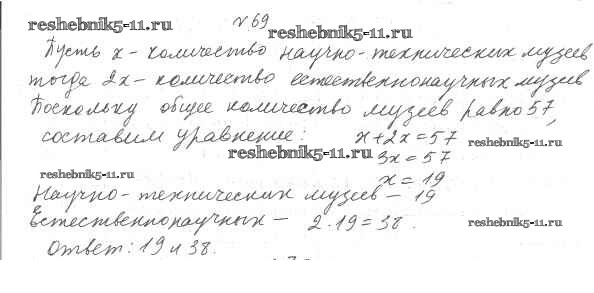 reshebnik5-11.ru
№69
reshebnik5-11.ru
Пусть x - количество научно-технических музеев
тогда 2x - количество естественнонаучных музеев
Поскольку общее количество музеев равно 57,
составим уравнение: x+2x=57
reshebnik5-11.ru
reshebnik5-11.ru
3x=57
reshebnik5-11.ru
x=19
Научно-технических музеев - 19
Естественнонаучных - 2·19=38.
reshebnik5-11.ru
Ответ: 19 и 38.